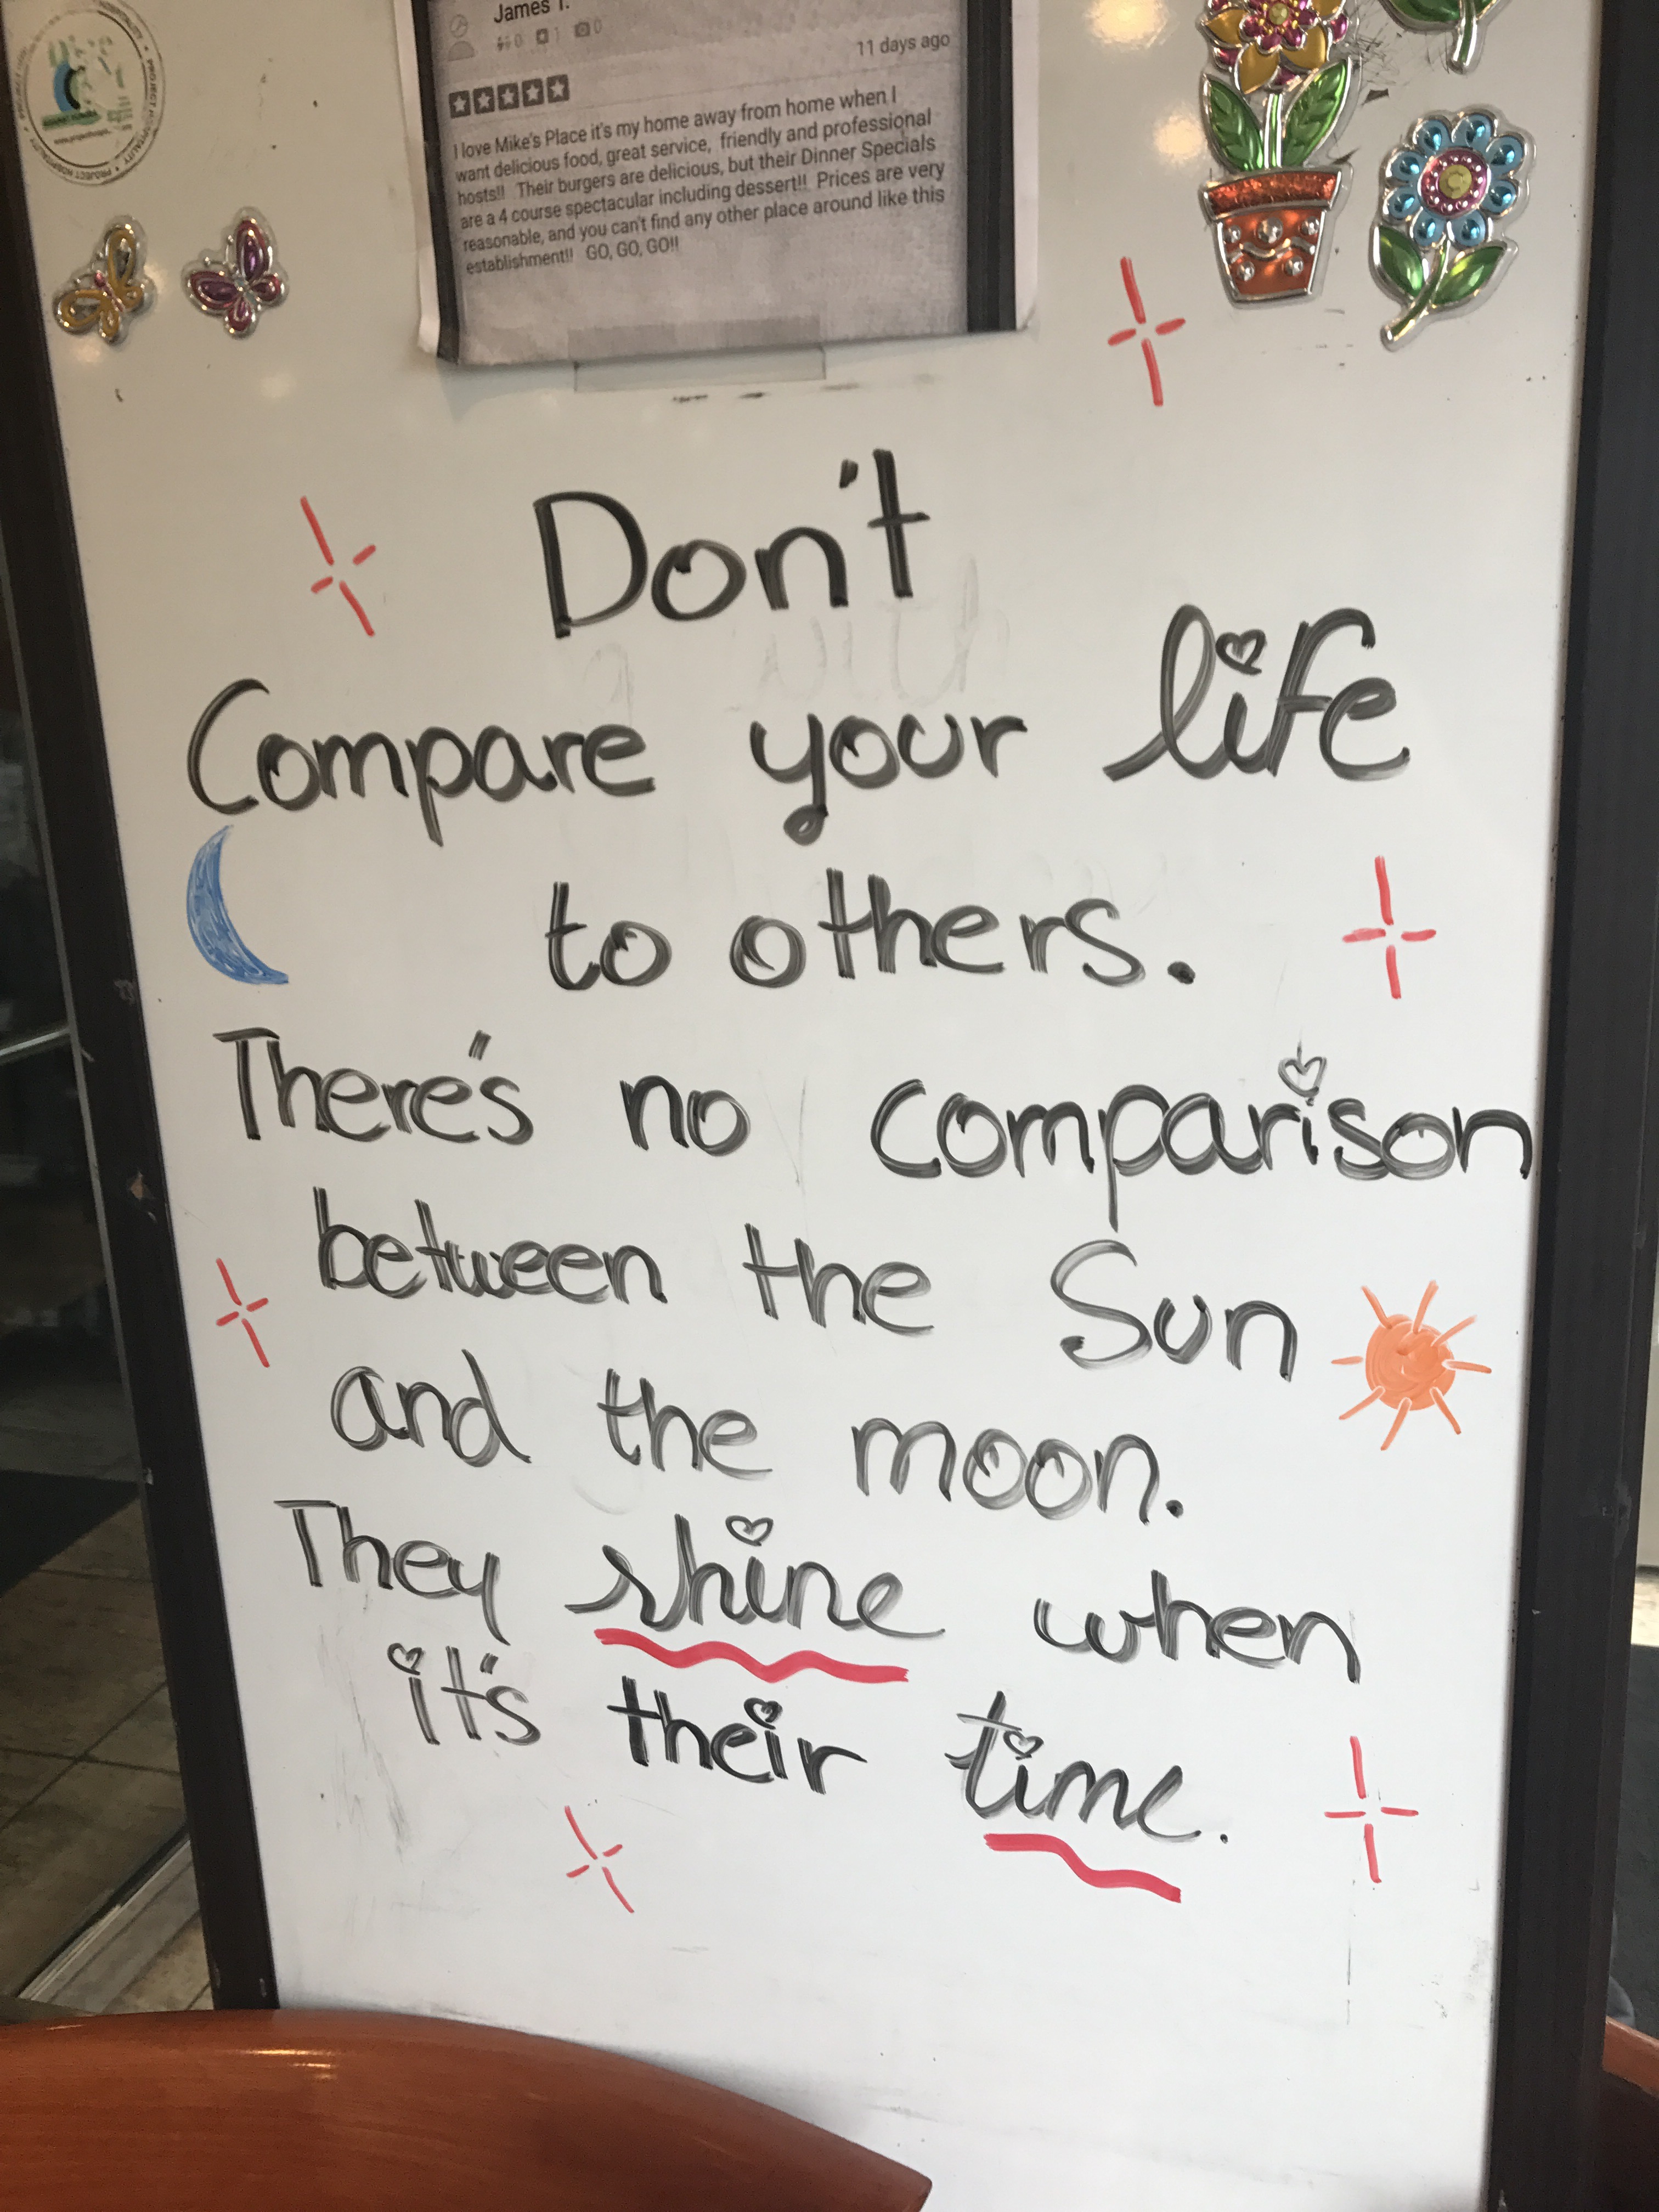 James T.
0 1 0
11 days ago
I love Mike's Place it's my home away from home when I
want delicious food, great service, friendly and professional
hosts!! Their burgers are delicious, but their Dinner Specials
are a 4 course spectacular including dessert!! Prices are very
reasonable, and you can't find any other place around like this
establishment!! GO, GO, GO!!
PROJECT HOSPITALITY
Don't
Compare your life
to others.
There's no comparison
between the Sun
and the moon.
They shine when
it's their time.